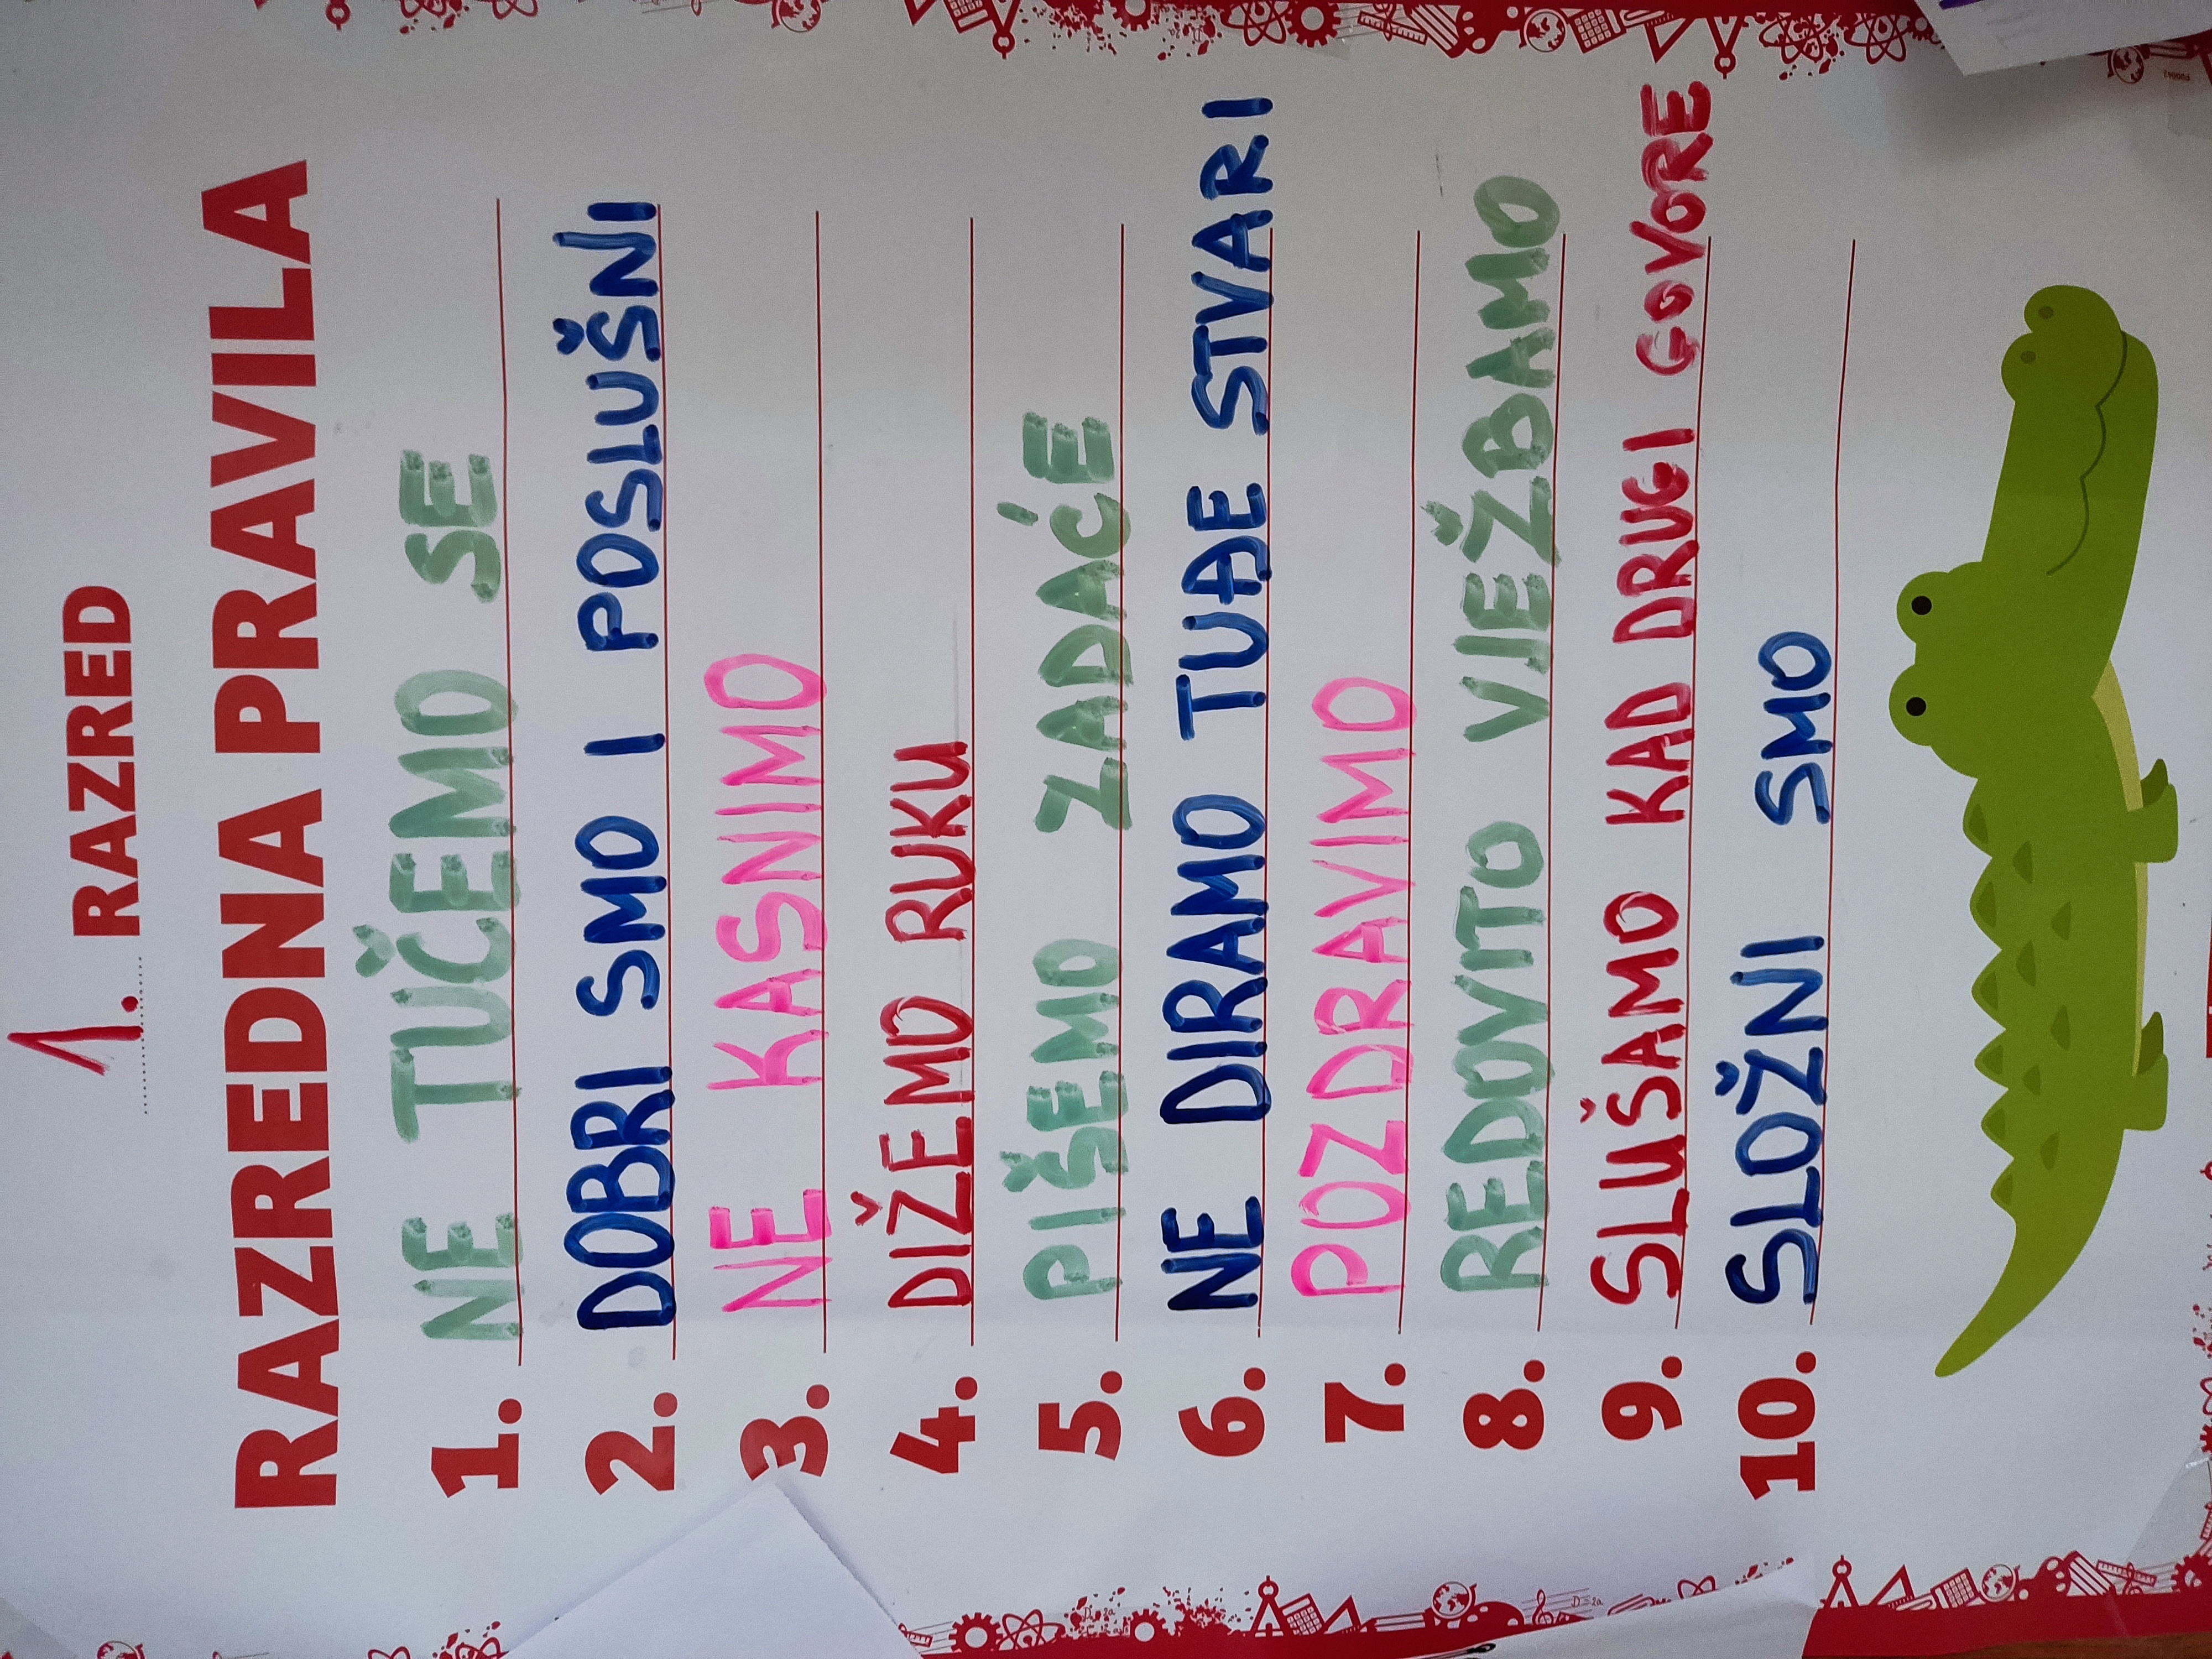 1. RAZRED
RAZREDNA PRAVILA
1. NE TUČEMO SE
2. DOBRI SMO I POSLUŠNI
3. NE KASNIMO
4. DIŽEMO RUKU
5. PIŠEMO ZADAĆE
6. NE DIRAMO TUĐE STVARI
7. POZDRAVIMO
8. REDOVITO VJEŽBAMO
9. SLUŠAMO KAD DRUGI GOVORE
10. SLOŽNI SMO